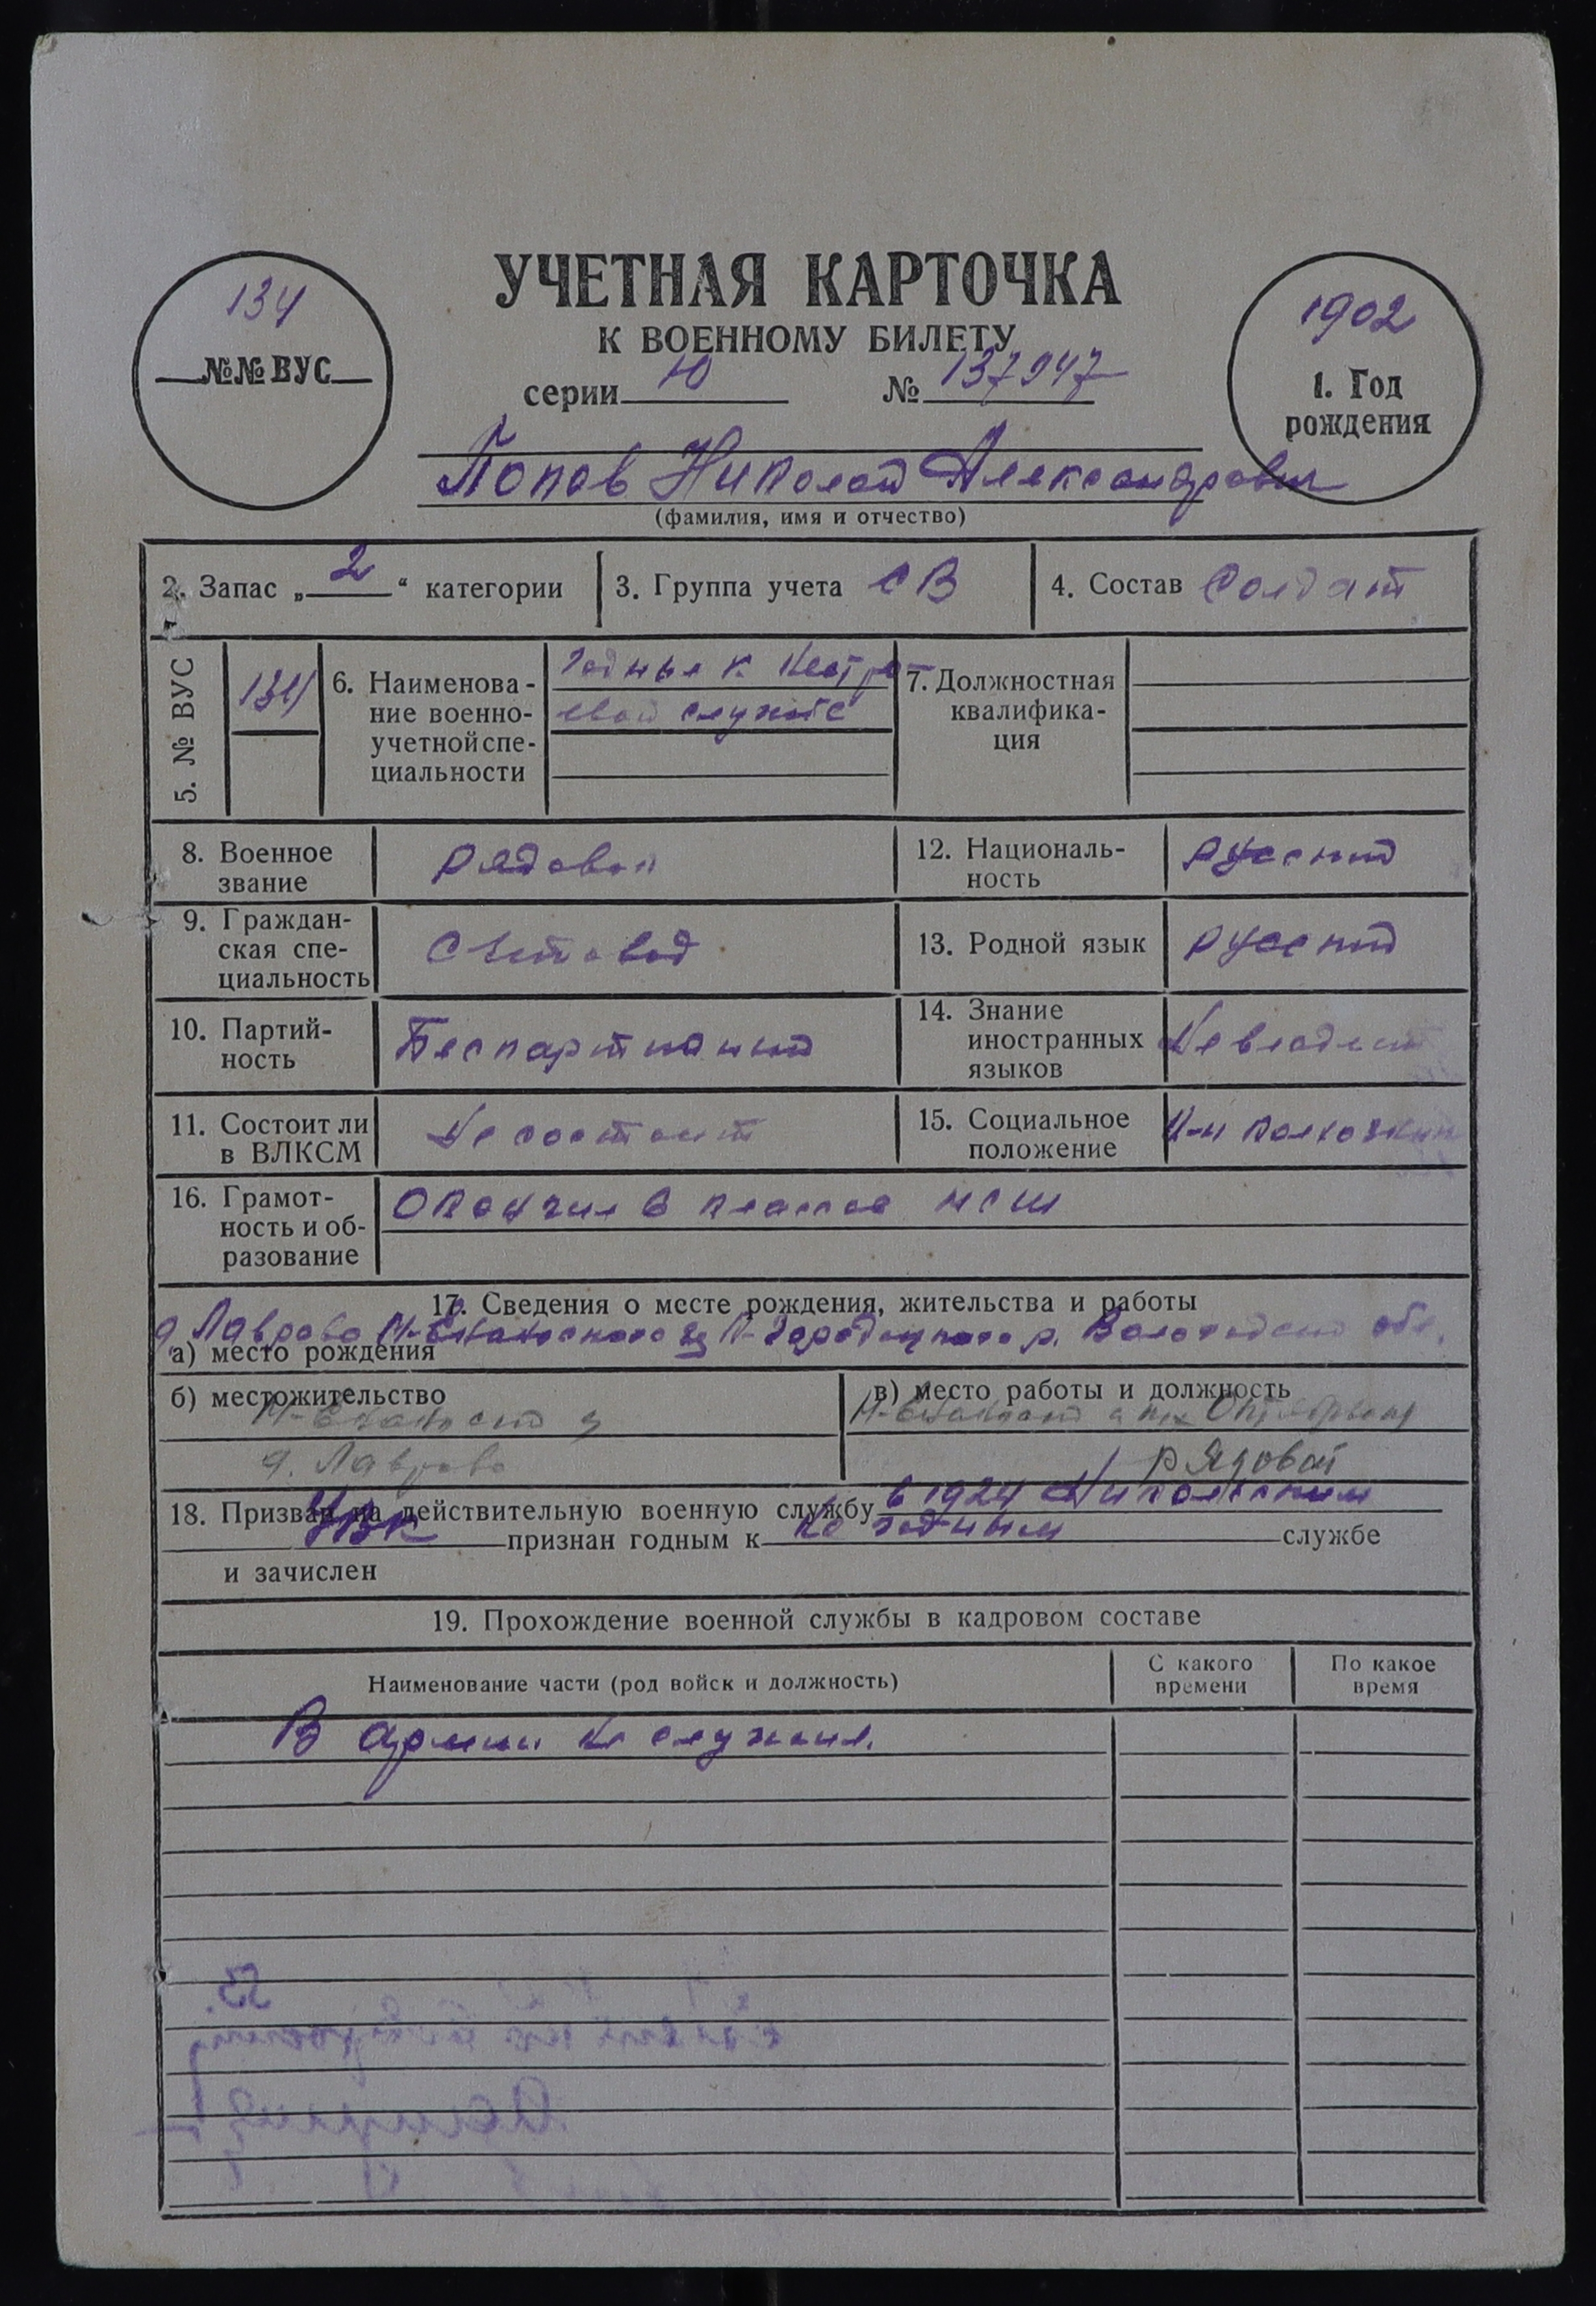 УЧЕТНАЯ КАРТОЧКА
К ВОЕННОМУ БИЛЕТУ
серии Ю № 137947
134
№№ ВУС
1902
1. Год
рождения
Попов Николай Александрович
(фамилия, имя и отчество)
2. Запас „ 2 “ категории
3. Группа учета СВ
4. Состав Солдат
5. № ВУС
134
6. Наименова-
ние военно-
учетной спе-
циальности
Годные к нестро
евой службе
7. Должностная
квалифика-
ция
8. Военное
звание
Рядовой
12. Националь-
ность
Русский
9. Граждан-
ская спе-
циальность
Счетовод
13. Родной язык
Русский
10. Партий-
ность
Беспартийный
14. Знание
иностранных
языков
Не владеет
11. Состоит ли
в ВЛКСМ
Не состоит
15. Социальное
положение
колхозник
16. Грамот-
ность и об-
разование
Окончил 6 классов НСШ
17. Сведения о месте рождения, жительства и работы
д. Лаврово К-Городецкого р. Вологодской обл.
а) место рождения
б) местожительство
д. Лаврово
в) место работы и должность
рядовой
18. Призван на действительную военную службу в 1924 Никольским
УВК признан годным к не годным службе
и зачислен
19. Прохождение военной службы в кадровом составе
Наименование части (род войск и должность)
С какого
времени
По какое
время
В армии не служил.